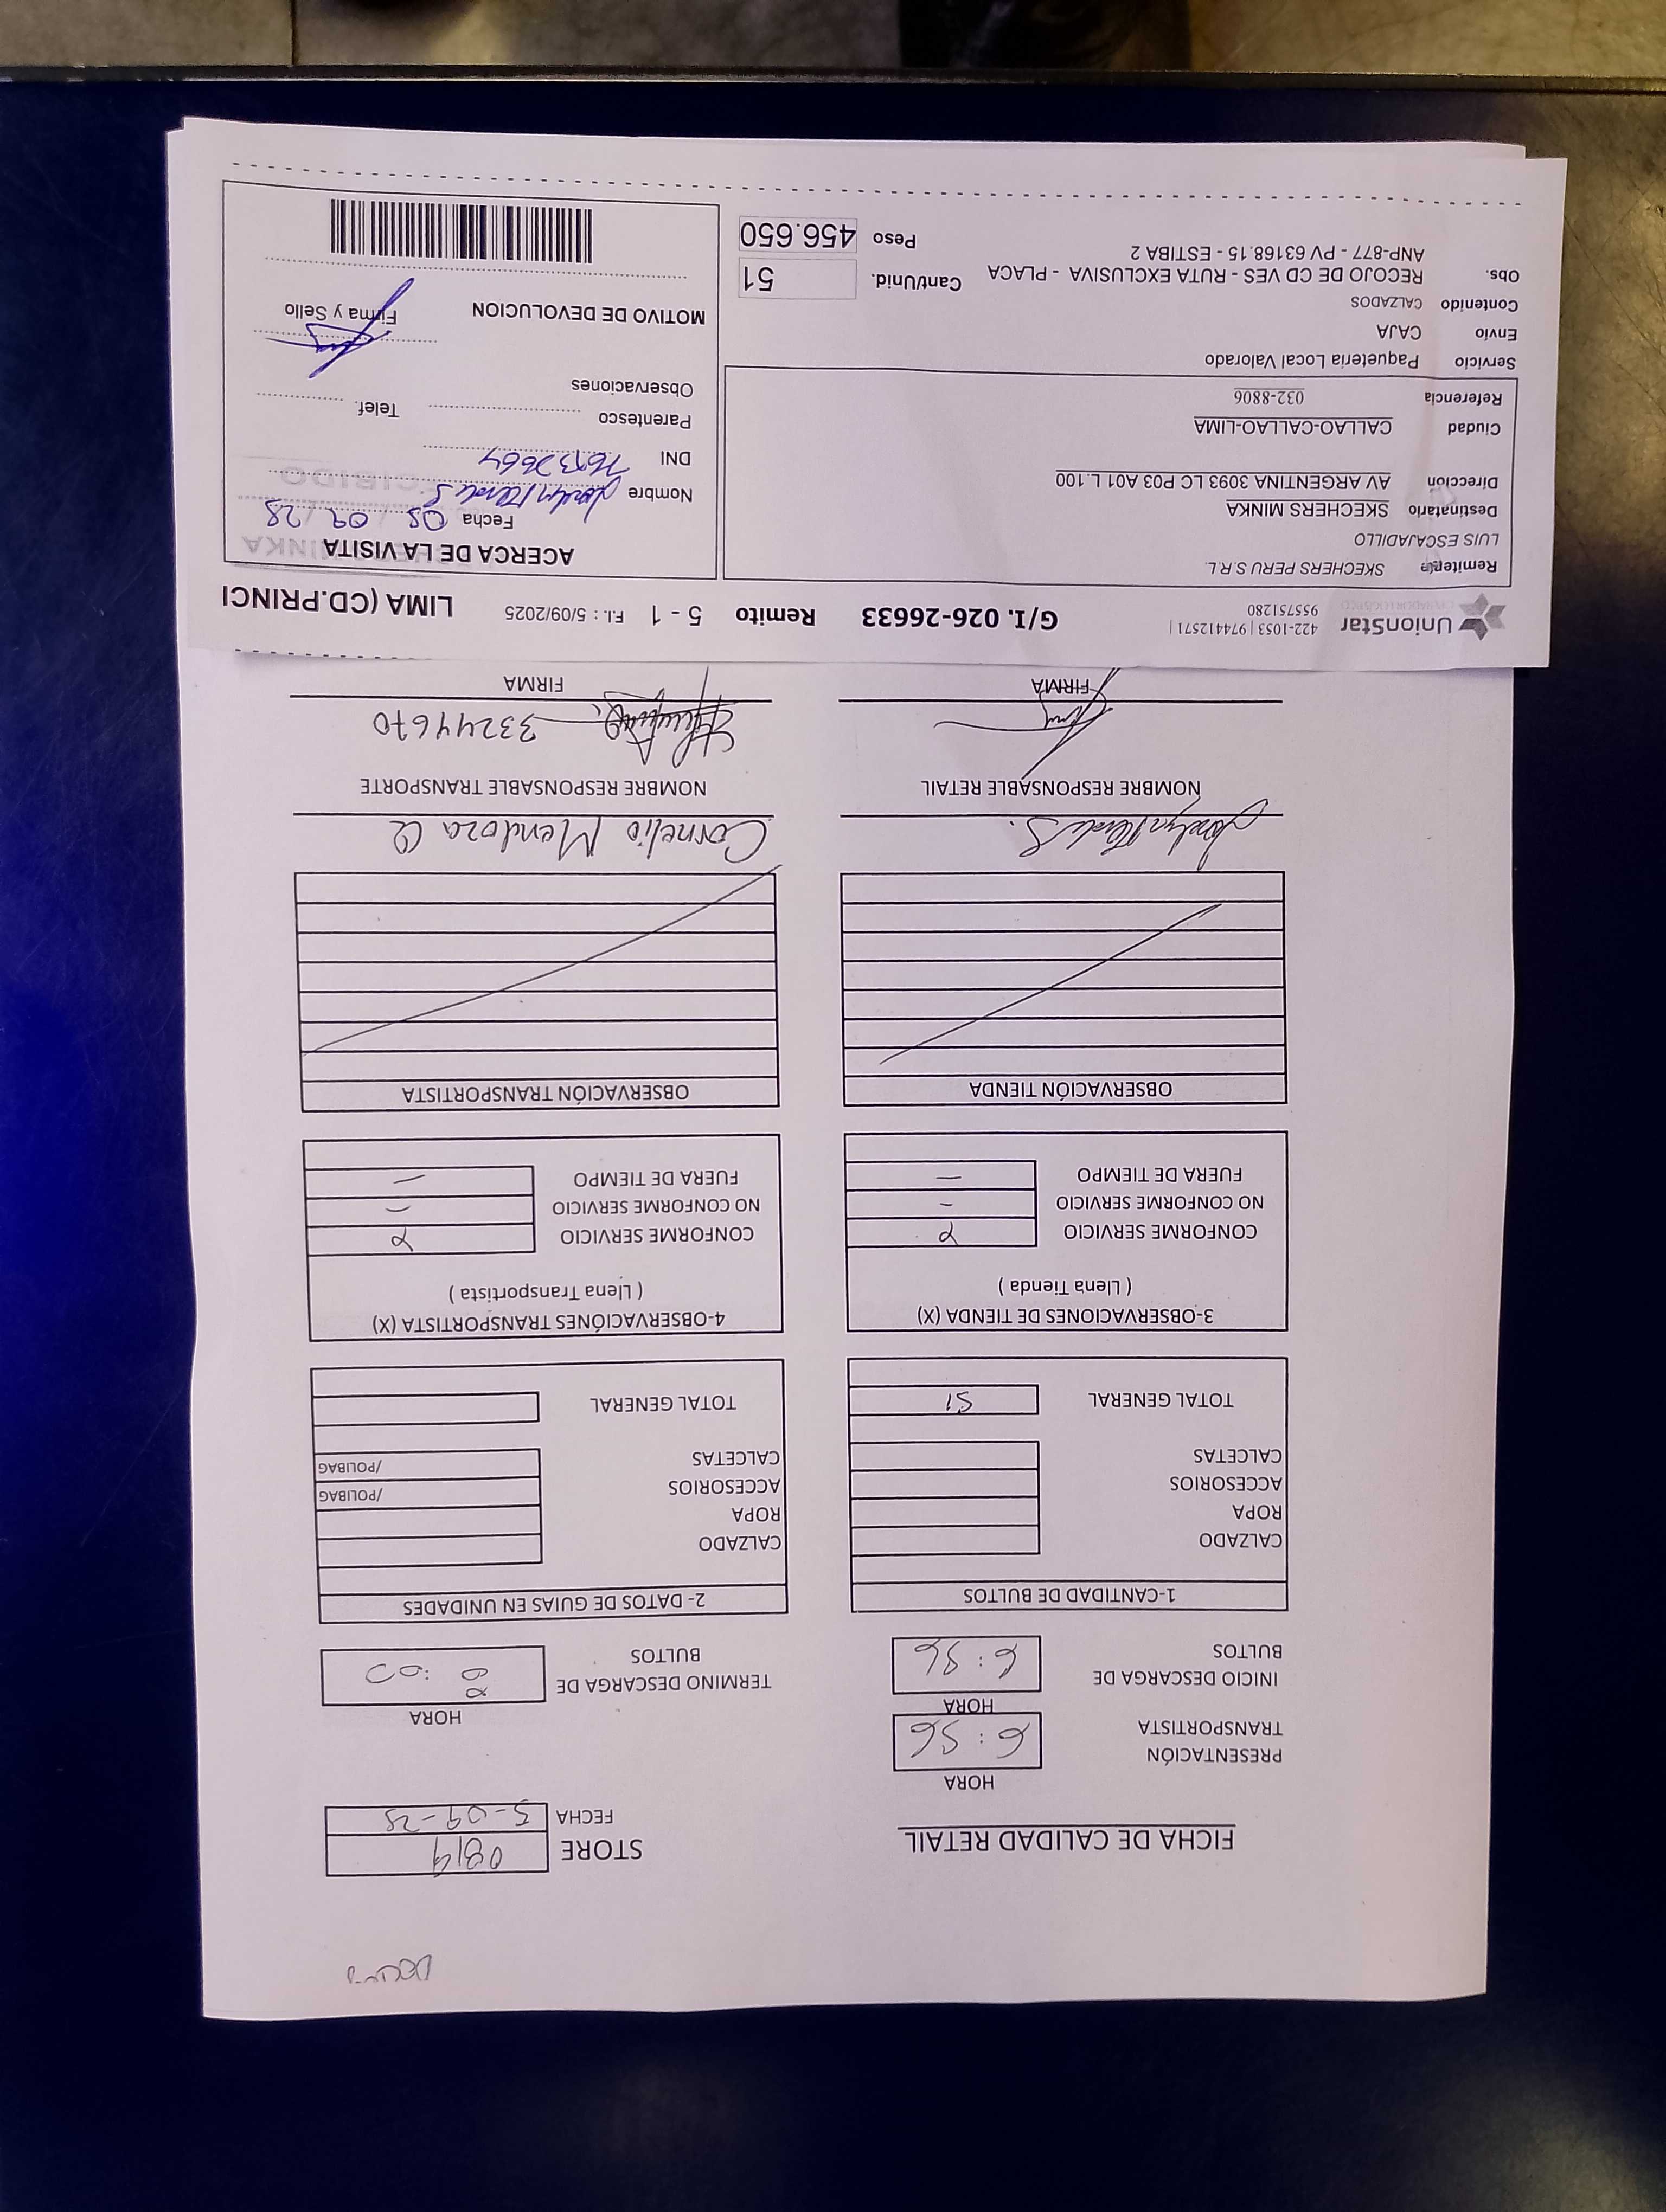 DECIMO
FICHA DE CALIDAD RETAIL
STORE 0819
FECHA 5-09-25
HORA
PRESENTACIÓN TRANSPORTISTA 6:56
HORA
INICIO DESCARGA DE BULTOS 6:56
HORA
TERMINO DESCARGA DE BULTOS :00
1-CANTIDAD DE BULTOS
CALZADO
ROPA
ACCESORIOS
CALCETAS
TOTAL GENERAL 51
2- DATOS DE GUIAS EN UNIDADES
CALZADO
ROPA
ACCESORIOS /POLIBAG
CALCETAS /POLIBAG
TOTAL GENERAL
3-OBSERVACIONES DE TIENDA (X)
( Llena Tienda )
CONFORME SERVICIO X
NO CONFORME SERVICIO -
FUERA DE TIEMPO -
4-OBSERVACIÓNES TRANSPORTISTA (X)
( Llena Transportista )
CONFORME SERVICIO X
NO CONFORME SERVICIO -
FUERA DE TIEMPO -
OBSERVACIÓN TIENDA
OBSERVACIÓN TRANSPORTISTA
NOMBRE RESPONSABLE RETAIL
Cornelio Mendoza Q
NOMBRE RESPONSABLE TRANSPORTE
33244670
FIRMA
FIRMA
UnionStar
422-1053 | 974412571 |
955751280
G/I. 026-26633
Remito 5 - 1
F.I. : 5/09/2025
LIMA (CD.PRINCI
Remitente SKECHERS PERU S.R.L
LUIS ESCAJADILLO
Destinatario SKECHERS MINKA
Direccion AV ARGENTINA 3093 LC P03 A01 L.100
Ciudad CALLAO-CALLAO-LIMA
Referencia 032-8806
Servicio Paqueteria Local Valorado
Envio CAJA
Contenido CALZADOS
Obs. RECOJO DE CD VES - RUTA EXCLUSIVA - PLACA
ANP-877 - PV 63168.15 - ESTIBA 2
Cant/Unid. 51
Peso 456.650
ACERCA DE LA VISITA
Fecha 05 09 25
Nombre
DNI
Parentesco
Telef.
Observaciones
MOTIVO DE DEVOLUCION
Firma y Sello